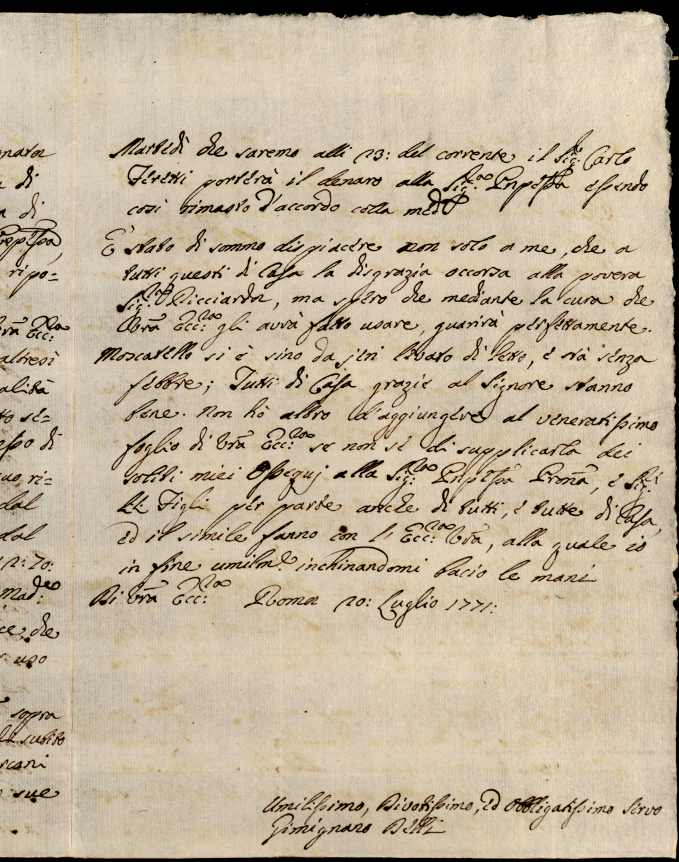 nata
a di
a di
Prpessa,
ripo=
Vrã Ecc:za
altresì
alità
to se=
esso di
suo, ri=
dal
dal
n: 70:
Mad:e
ce, che
r uso
sopra
subito
rcani
sue
Martedì che saremo alli 23: del corrente il Sig:re Carlo
Feretti porterà il denaro alla Sig:ra Pnpessa essendo
così rimasto d'accordo colla medã
E' stato di sommo dispiacere non solo a me, che a
tutti questi di Casa la disgrazia occorsa alla povera
Sig:ra Ricciarda, ma spero che mediante la cura che
Vrã Ecc:za gli avrà fatto usare, guarirà perfettamente.
Moscatello si è sino da jeri levato di letto, e stà senza
febbre; Tutti di Casa grazie al Signore stanno
bene. Non hò altro d'aggiungere al veneratissimo
foglio di Vrã Ecc:za se non se di supplicarla dei
soliti miei Ossequj alla Sig:ra Pnpessa Pronã, e Sig:i
Figli per parte anche di tutti, e tutte di Casa,
ed il simile fanno con l'Ecc:za Vrã, alla quale io
in fine umilm:e inchinandomi bacio le mani
Di Vrã Ecc:za Roma 20: Luglio 1771:
Umilissimo, Divotissimo, ed Obbligatissimo Servo
Gimignano Betti